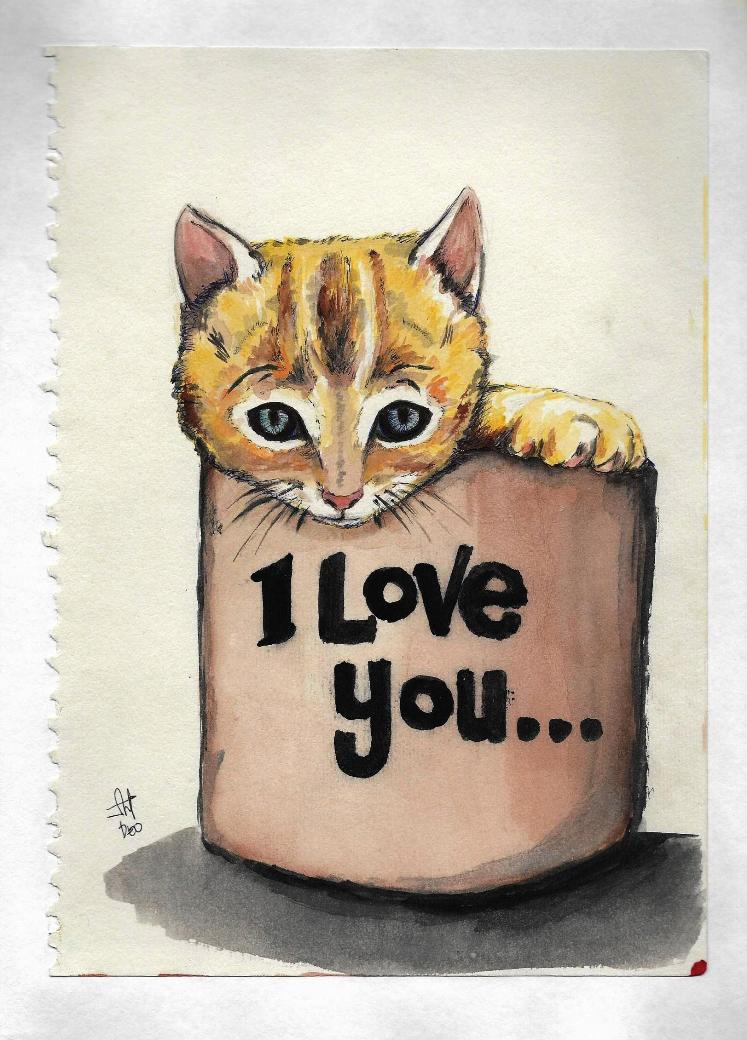 I Love
you...